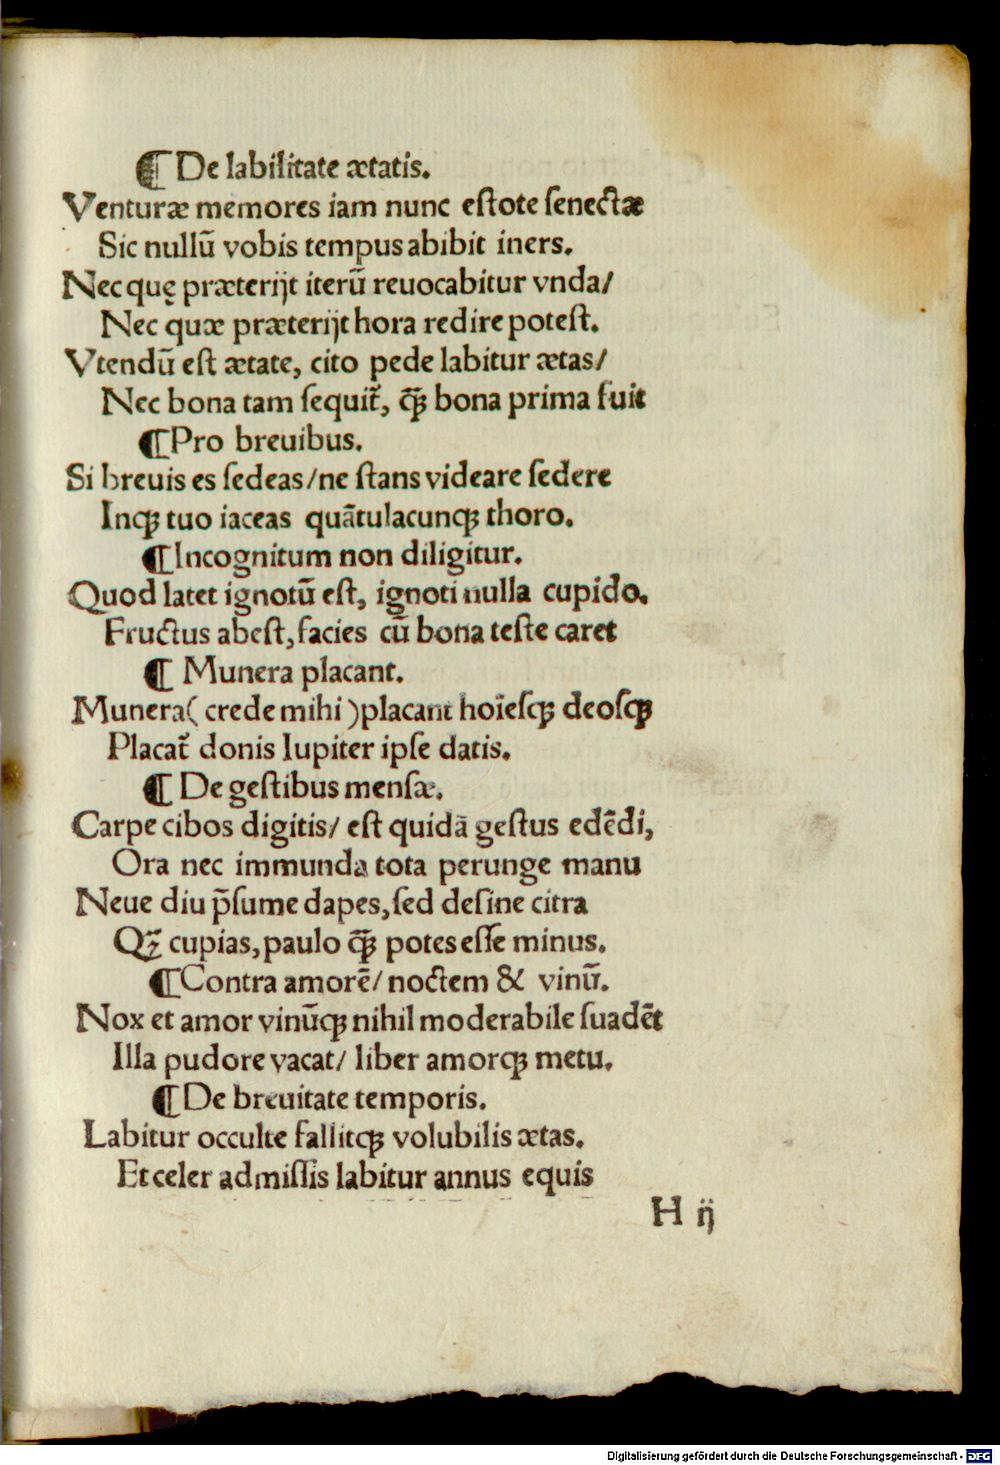 ¶ De labilitate ætatis.
Venturæ memores iam nunc eſtote ſenectæ
Sic nullū vobis tempus abibit iners.
Nec quę præterijt iterū reuocabitur vnda/
Nec quæ præterijt hora redire poteſt.
Vtendū eſt ætate, cito pede labitur ætas/
Nec bona tam ſequit᷑, ꝙ̄ bona prima fuit
¶Pro breuibus.
Si breuis es ſedeas/ne ſtans videare ſedere
Inqꝫ tuo iaceas quātulacunqꝫ thoro.
¶Incognitum non diligitur.
Quod latet ignotū eſt, ignoti nulla cupido.
Fructus abeſt, facies cū bona teſte caret
¶ Munera placant.
Munera( crede mihi )placant hoīeſqꝫ deoſqꝫ
Placat᷑ donis Iupiter ipſe datis.
¶ De geſtibus menſæ.
Carpe cibos digitis/ eſt quidā geſtus edēdi,
Ora nec immunda tota perunge manu
Neue diu p̄ſume dapes, ſed deſine citra
Qꝫ̄ cupias, paulo ꝙ̄ potes eſſe minus.
¶Contra amorē/ noctem & vinū.
Nox et amor vinūqꝫ nihil moderabile ſuadēt
Illa pudore vacat/ liber amorqꝫ metu.
¶De breuitate temporis.
Labitur occulte fallitqꝫ volubilis ætas.
Et celer admiſſis labitur annus equis
H ij
Digitalisierung gefördert durch die Deutsche Forschungsgemeinschaft - DFG